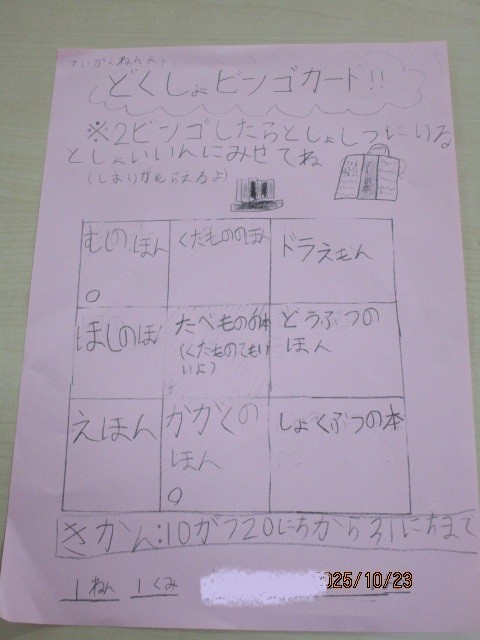 ていがくねんよう
どくしょビンゴカード!!
※2ビンゴしたらとしょしつにいる
としょいいんにみせてね
(しおりがもらえるよ)
むしのほん
くだもののほん
ドラえもん
ほしのほん
たべものの本
(くだものでもい
いよ)
どうぶつの
ほん
えほん
かがくの
ほん
しょくぶつの本
きかん:10がつ20にちから31にちまで
1ねん 1くみ
025/10/23